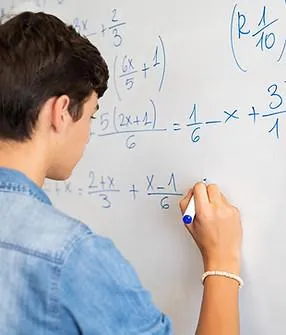 x + 2/3
(6x/5 + 1)
(R 1/10
+ 5(2x+1)/6 = 1/6 - x + 3/1
+ x = 2+x/3 + x-1/6